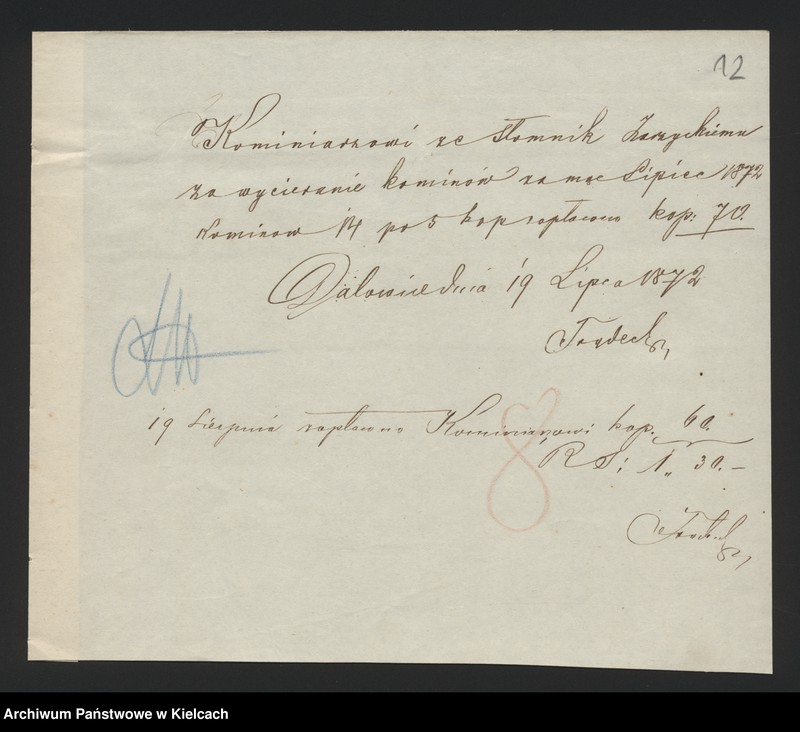 12
Kominiarzowi ze Słomnik Zarzyckiemu
za wycieranie kominów za mc Lipiec 1872
Kominow 14 po 5 kop zapłacono kop: 70.
Dalowice dnia 19 Lipca 1872
19 Sierpnia zapłacono Kominiarzowi kop. 60.
RS: 1,, 30.–
8
Archiwum Państwowe w Kielcach